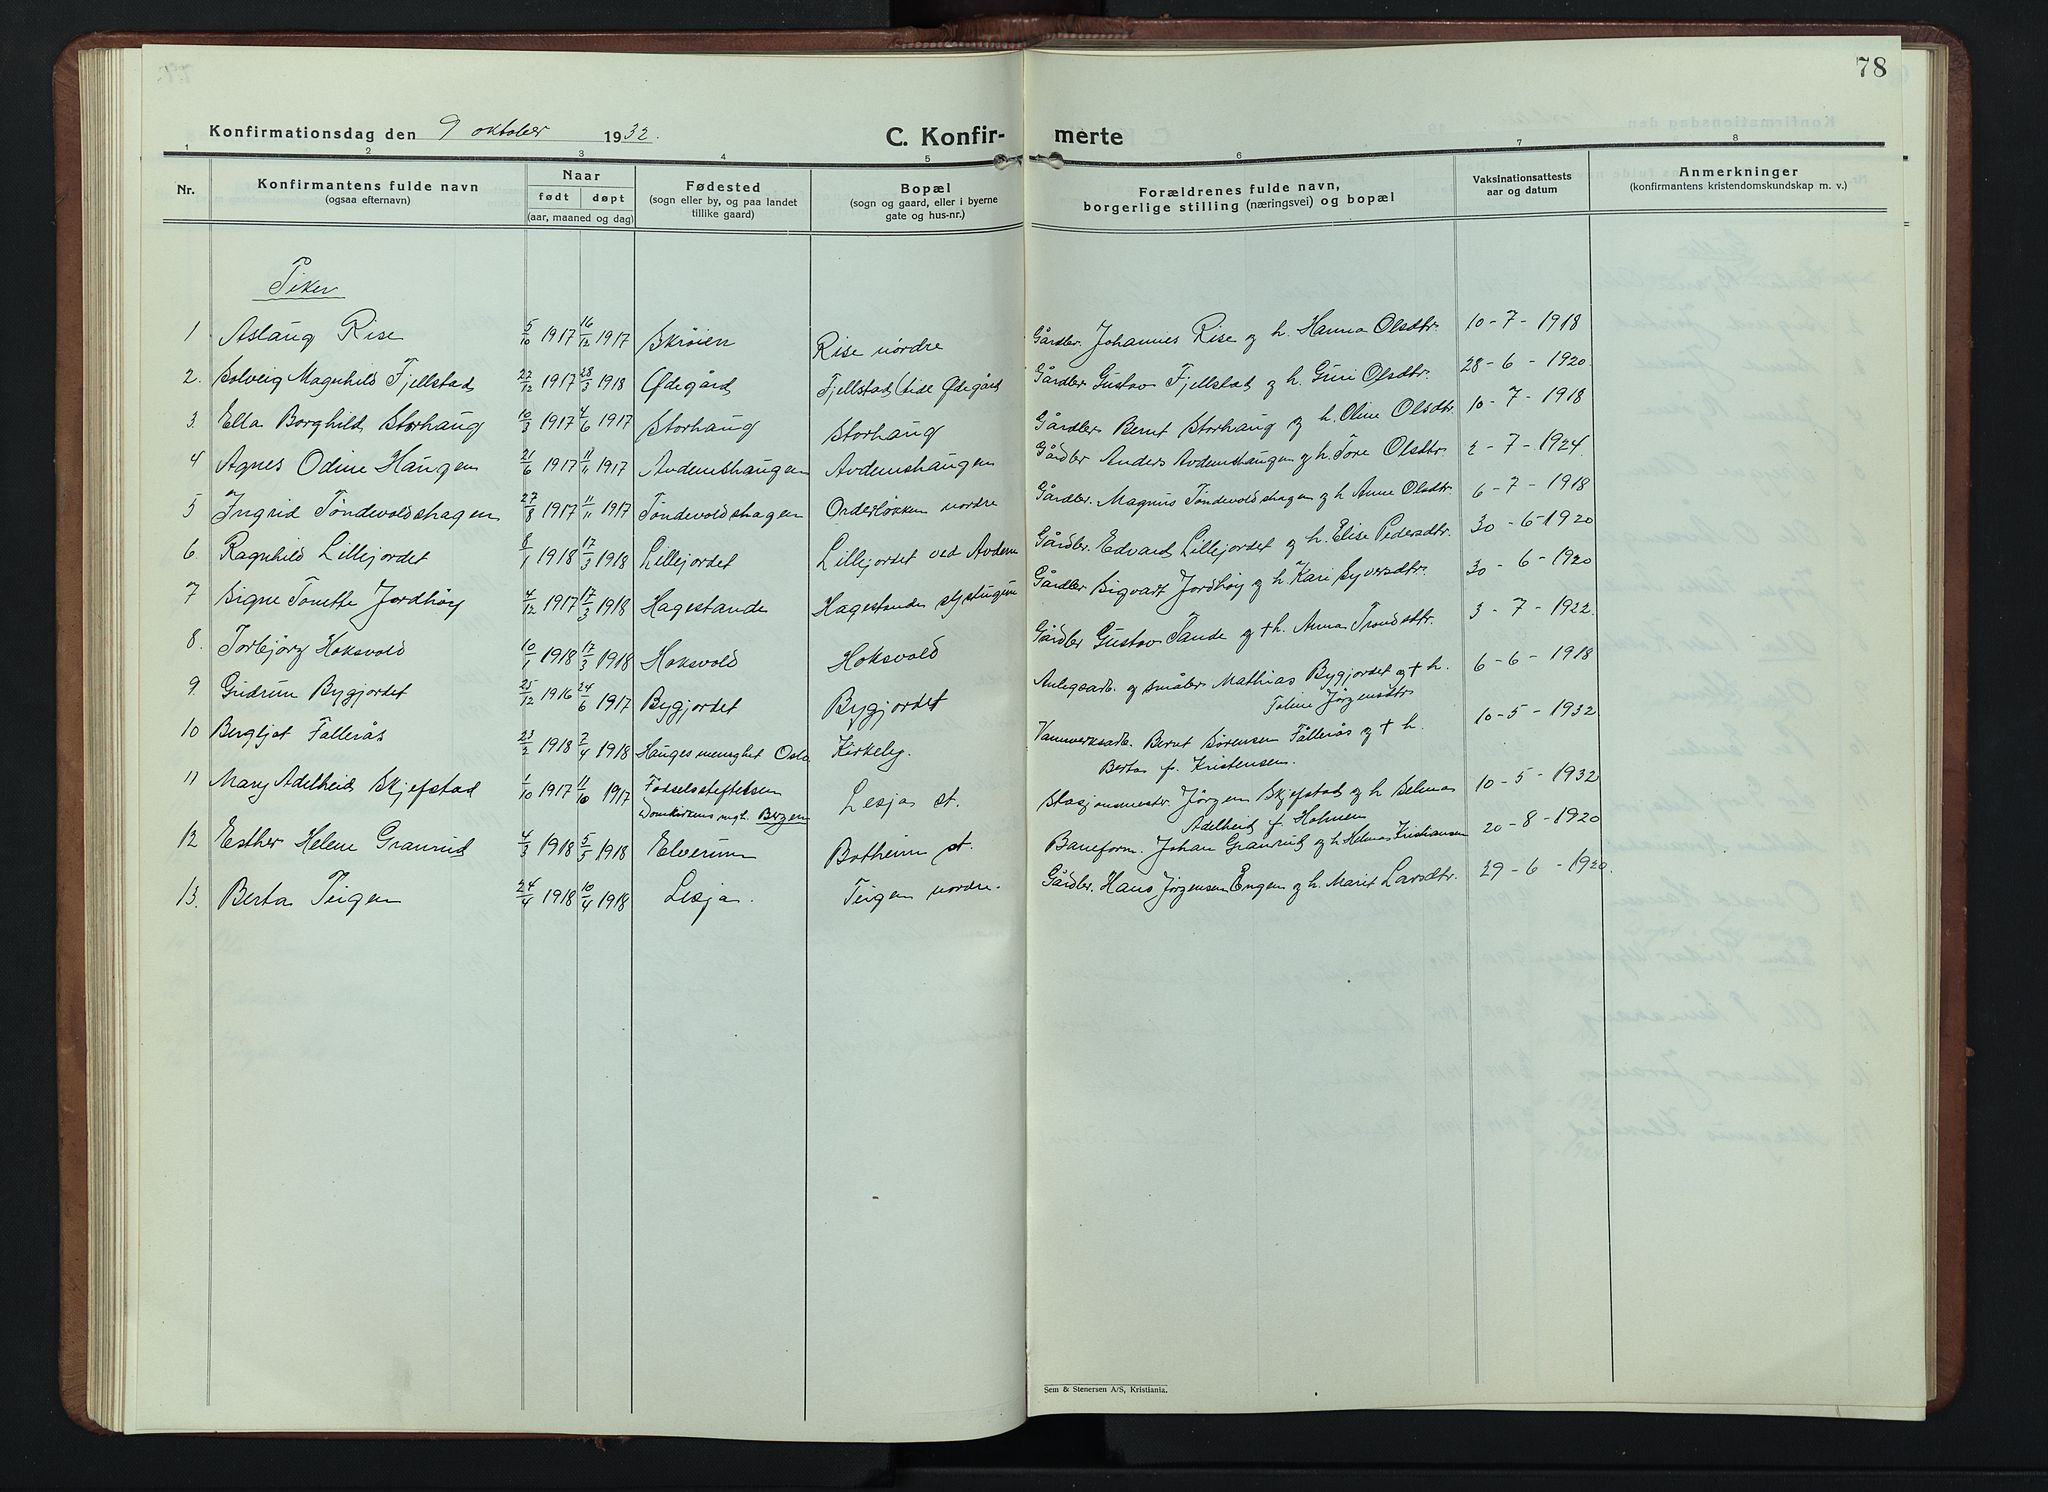 78
Konfirmationsdag den 9 oktober 1932.
C. Konfir- merte
1 2 3 4 5 6 7 8
Nr. Konfirmantens fulde navn (ogsaa efternavn) Naar født døpt (aar, maaned og dag) Fødested (sogn eller by, og paa landet tillike gaard) Bopæl (sogn og gaard, eller i byerne gate og hus-nr.) Forældrenes fulde navn, borgerlige stilling (næringsvei) og bopæl Vaksinationsattests aar og datum Anmerkninger (konfirmantens kristendomskundskap m. v.)
Piker
1 Aslaug Rise 5/10 1917 16/12 1917 Skrøien Rise nordre Gårdbr. Johannes Rise og h. Hanna Olsdtr. 10-7-1918
2. Solveig Magnhild Fjellstad 27/12 1917 28/3 1918 Ødegård Fjellstad Gårdbr. Gustav Fjellstad og h. Guri Olsdtr. 28-6-1920
3. Ella Borghild Storhaug 10/3 1917 4/6 1917 Storhaug Storhaug Gårdbr Bernt Storhaug og h. Oline Olsdtr. 10-7-1918
4 Agnes Odine Haugen 21/6 1917 11/11 1917 Avdemshaugen Avdemshaugen Gårdbr Anders Avdemshaugen og h. Tore Olsdtr. 2-7-1924
5 Ingrid Tøndevoldshagen 27/8 1917 11/11 1917 Tøndevoldshagen nordre Gårdbr. Magnus Tøndevoldshagen og h Anne Olsdtr. 6-7-1918
6. Ragnhild Lillejordet 8/1 1918 17/3 1918 Lillejordet Lillejordet ved Avdem Gårdbr. Edvard Lillejordet og h. Elise Pedersdtr. 30-6-1920
7 Signe Tonette Jordhøy 4/12 1917 17/3 1918 Hagestande Hagestande Gårdbr Sigvart Jordhøy og h Kari Syversdtr. 30-6-1920
8. Torbjørg Hoksvold 10/1 1918 17/3 1918 Hoksvold Hoksvold Gårdbr Gustav Tande og † h. Anna Trondsdtr. 3-7-1922
9. Gudrun Bygjordet 25/12 1916 24/6 1917 Bygjordet Bygjordet Anlegsarb. og småbr Mathias Bygjordet og † h.
Toline Jørgensdtr 6-6-1918
10 Bergljot Fallerås 23/2 1918 7/4 1918 Hauges menighet Oslo Kirkelig. Vannverksarb. Bernt Sørensen Fållerås og † h.
Berta f. Kristensen. 10-5-1932
11 Mary Adelheid Skjefstad 1/10 1917 11/10 1917 Fødselsstiftelsen
Domkirkens mgh. Bergen Lesja st. Stasjonsmester Jörgen Skjefstad og h Selma
Adelheid f. Holmen 10-5-1932
12 Esther Helene Granrud 4/3 1918 5/5 1918 Elverum Bottheim st. Baneform. Johan Granrud og h Helma Kristiansen 20-8-1920
13. Berta Teigen 24/4 1918 10/4 1918 Lesja. Teigen nordre. Gårdbr. Hans Jørgensen Engen og h. Marit Larsdtr. 29-6-1920.
Sem & Stenersen A/S, Kristiania.